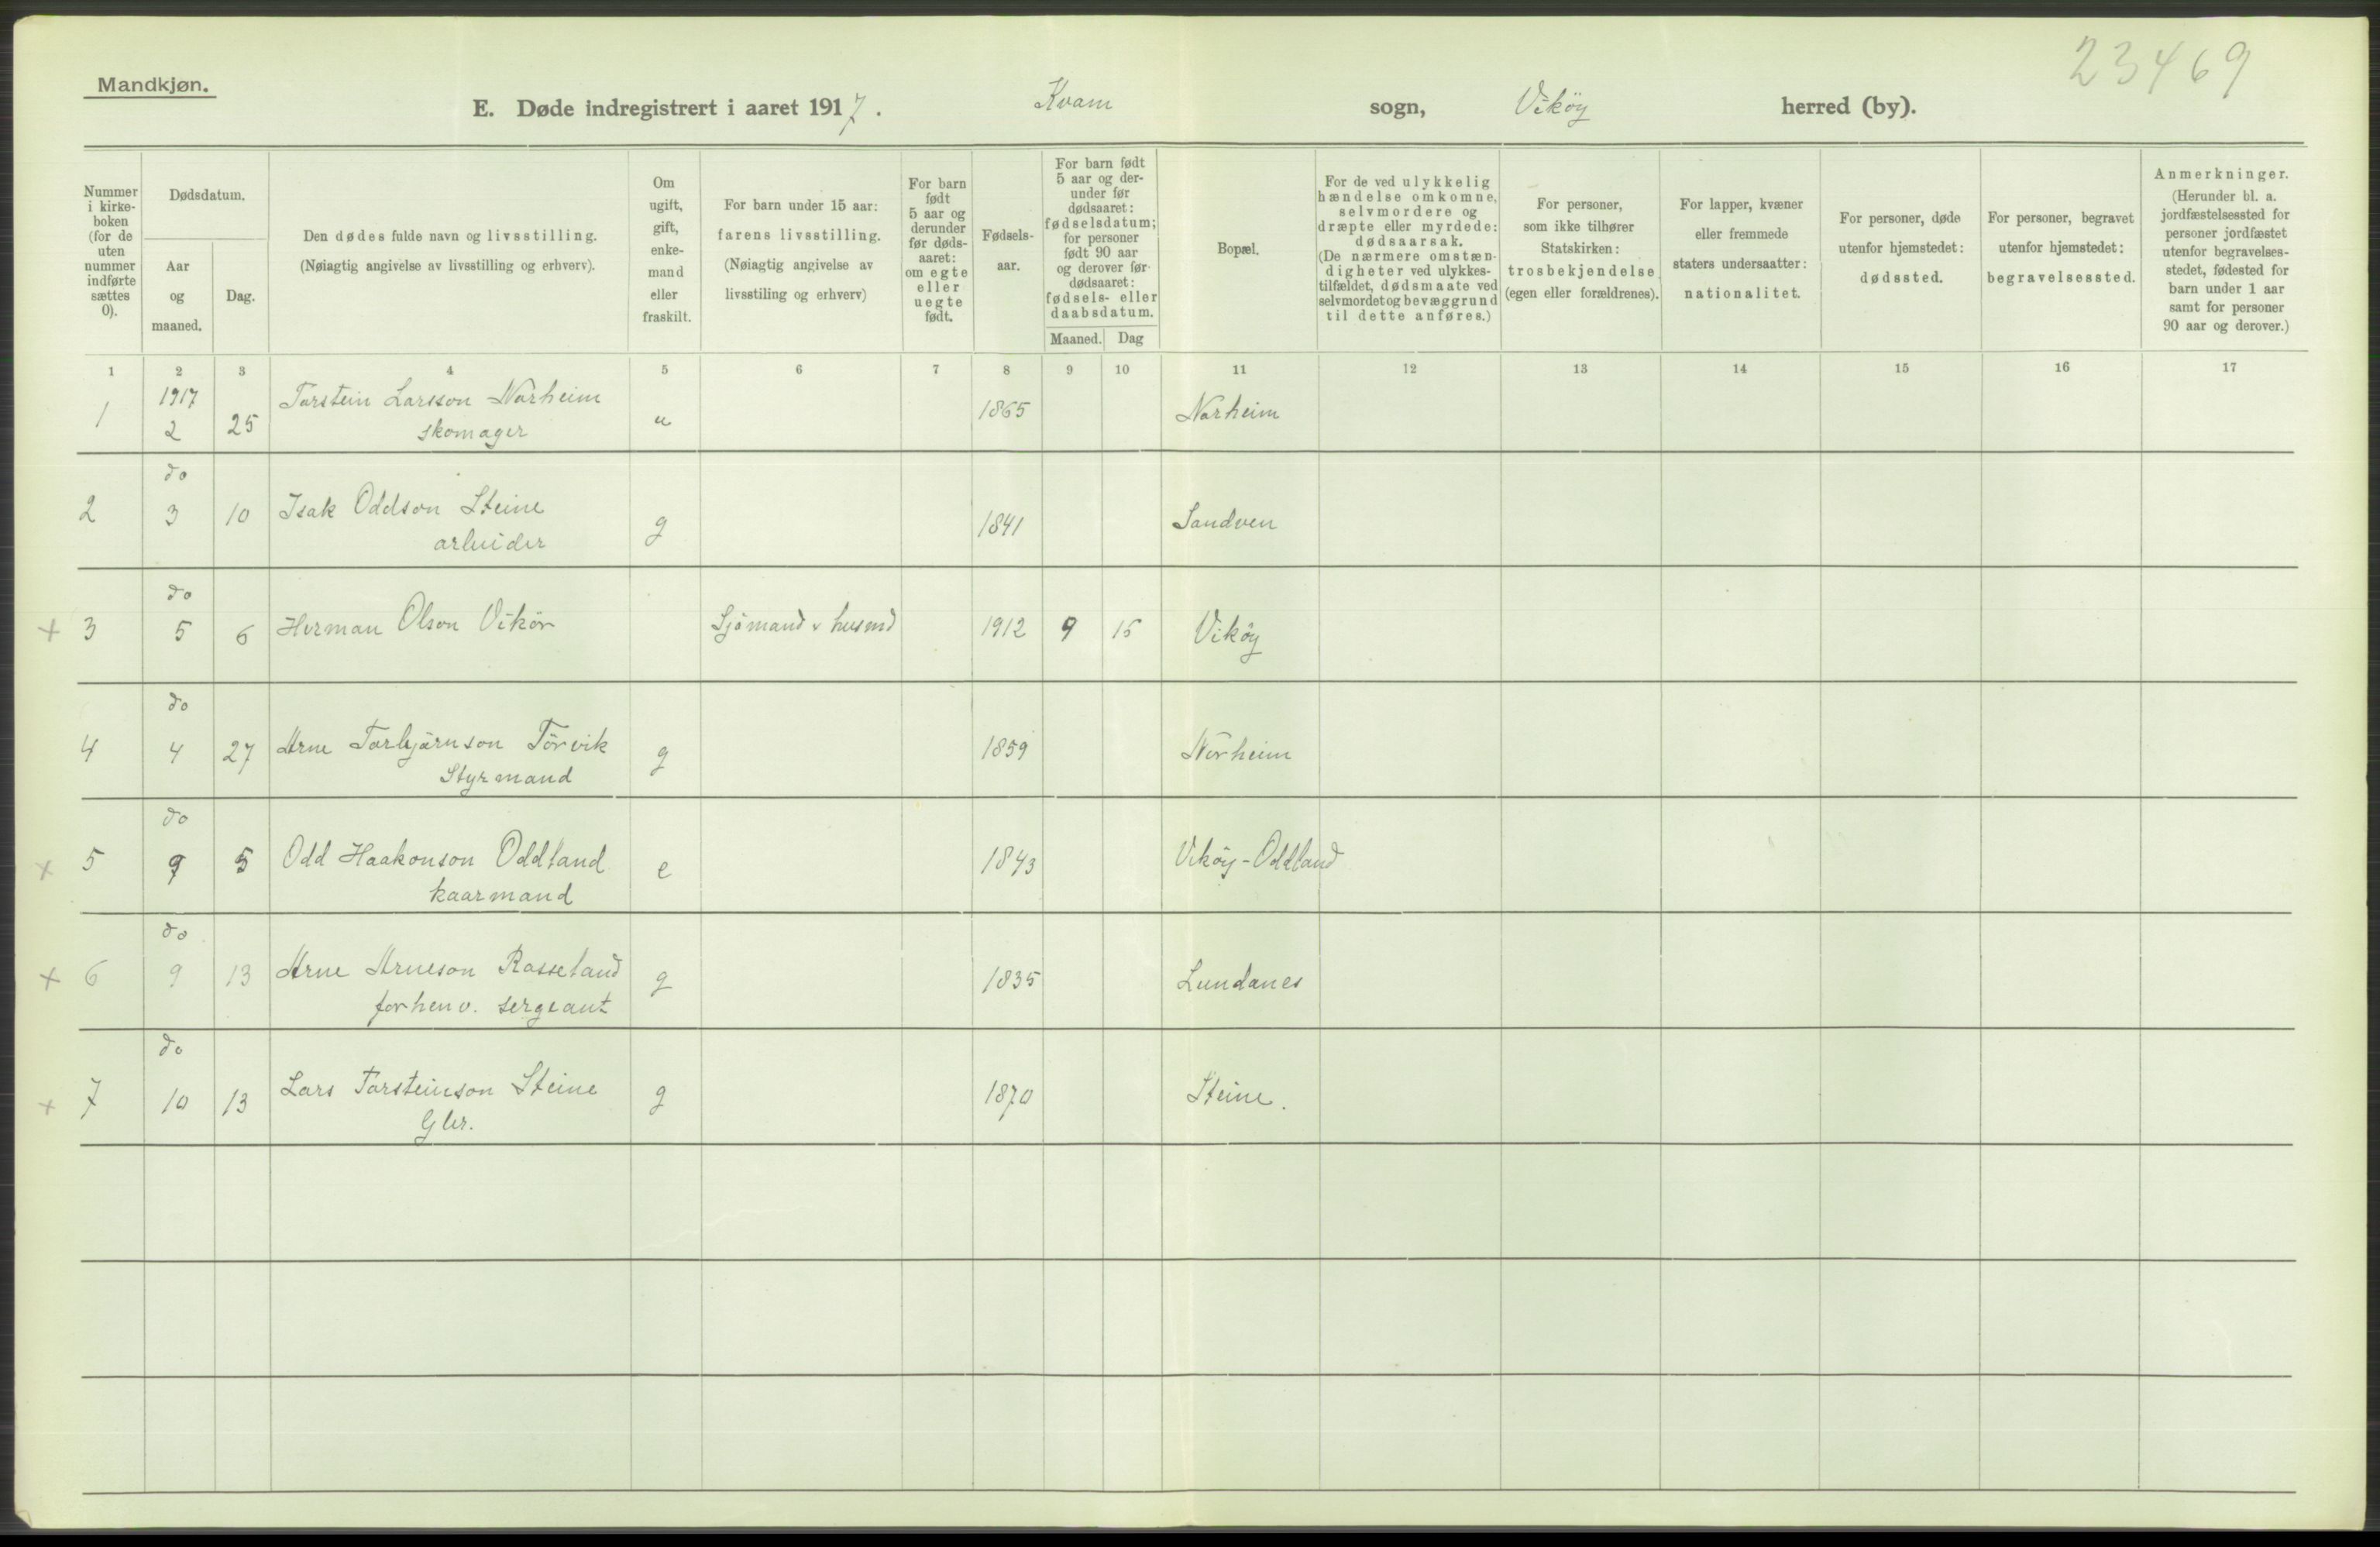 23469
Mandkjøn.
E. Døde indregistrert i aaret 1917. Kvam sogn, Viköy herred (by).
Nummer i kirke-boken (for de uten nummer indførte sættes 0).
Dødsdatum.
Aar og maaned.
Dag.
Den dødes fulde navn og livsstilling.
(Nøiagtig angivelse av livsstilling og erhverv).
Om ugift, gift, enke-mand eller fraskilt.
For barn under 15 aar:
farens livsstilling.
(Nøiagtig angivelse av
livsstiling og erhverv)
For barn født 5 aar og derunder før døds-aaret: om egte eller uegte født.
Fødsels-aar.
For barn født 5 aar og der-under før dødsaaret: fødselsdatum; for personer født 90 aar og derover før dødsaaret: fødsels- eller daabsdatum.
Maaned. Dag
Bopæl.
For de ved ulykkelig hændelse omkomne, selvmordere og dræpte eller myrdede: dødsaarsak. (De nærmere omstæn-digheter ved ulykkes-tilfældet, dødsmaate ved selvmordet og bevæggrund til dette anføres.)
For personer, som ikke tilhører Statskirken: trosbekjendelse (egen eller forældrenes).
For lapper, kvæner eller fremmede staters undersaatter: nationalitet.
For personer, døde utenfor hjemstedet: dødssted.
For personer, begravet utenfor hjemstedet: begravelsessted.
Anmerkninger.
(Herunder bl. a. jordfæstelsessted for personer jordfæstet utenfor begravelses-stedet, fødested for barn under 1 aar samt for personer 90 aar og derover.)
1 2 3 4 5 6 7 8 9 10 11 12 13 14 15 16 17
1917
1 2 25 Torstein Larsson Norheim u 1865 Norheim
skomager
do
2 3 10 Isak Oddson Steine g 1841 Sandven
arbeider
do
+ 3 5 6 Herman Olson Vikör Sjömand & husmd 1912 9 15 Viköy
do
4 4 27 Arne Torbjörnson Törvik g 1859 Norheim
Styrmand
do
+ 5 9 5 Odd Haakonson Oddland e 1843 Viköy-Oddland
kaarmand
do
+ 6 9 13 Arne Arneson Rosseland g 1835 Lundanes
forhenv. sergeant
do
+ 7 10 13 Lars Torsteinson Steine g 1870 Steine.
Gbr.